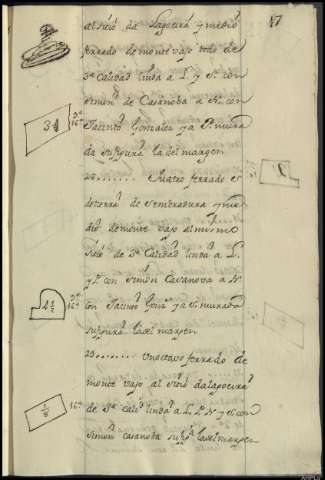 17
al sitio da Lagoeira y medio
ferrado de monte vajo todo de
3ª Calidad linda a L. y S. con
Simon de Casanoba a N. con
Jacinto Gonzalez y a P. mura
da su figura la del margen
22........ Quatro ferrados
de tierra de Sembradura y me
dio de monte vajo al mismo
sitio de 3ª Calidad linda a L.
y S. con Simon Casanova a N.
con Jacinto Gonz y a P. murada
su figura la del margen.
23........ Un octavo ferrado de
monte vajo al sitio da Lagoeira
de 3ª Calid linda a L. P. N. y S. con
Simon Casanoba su figª la del margen
3 1
3ª
16ª
4 1/2
3ª
16ª
1/8
16ª